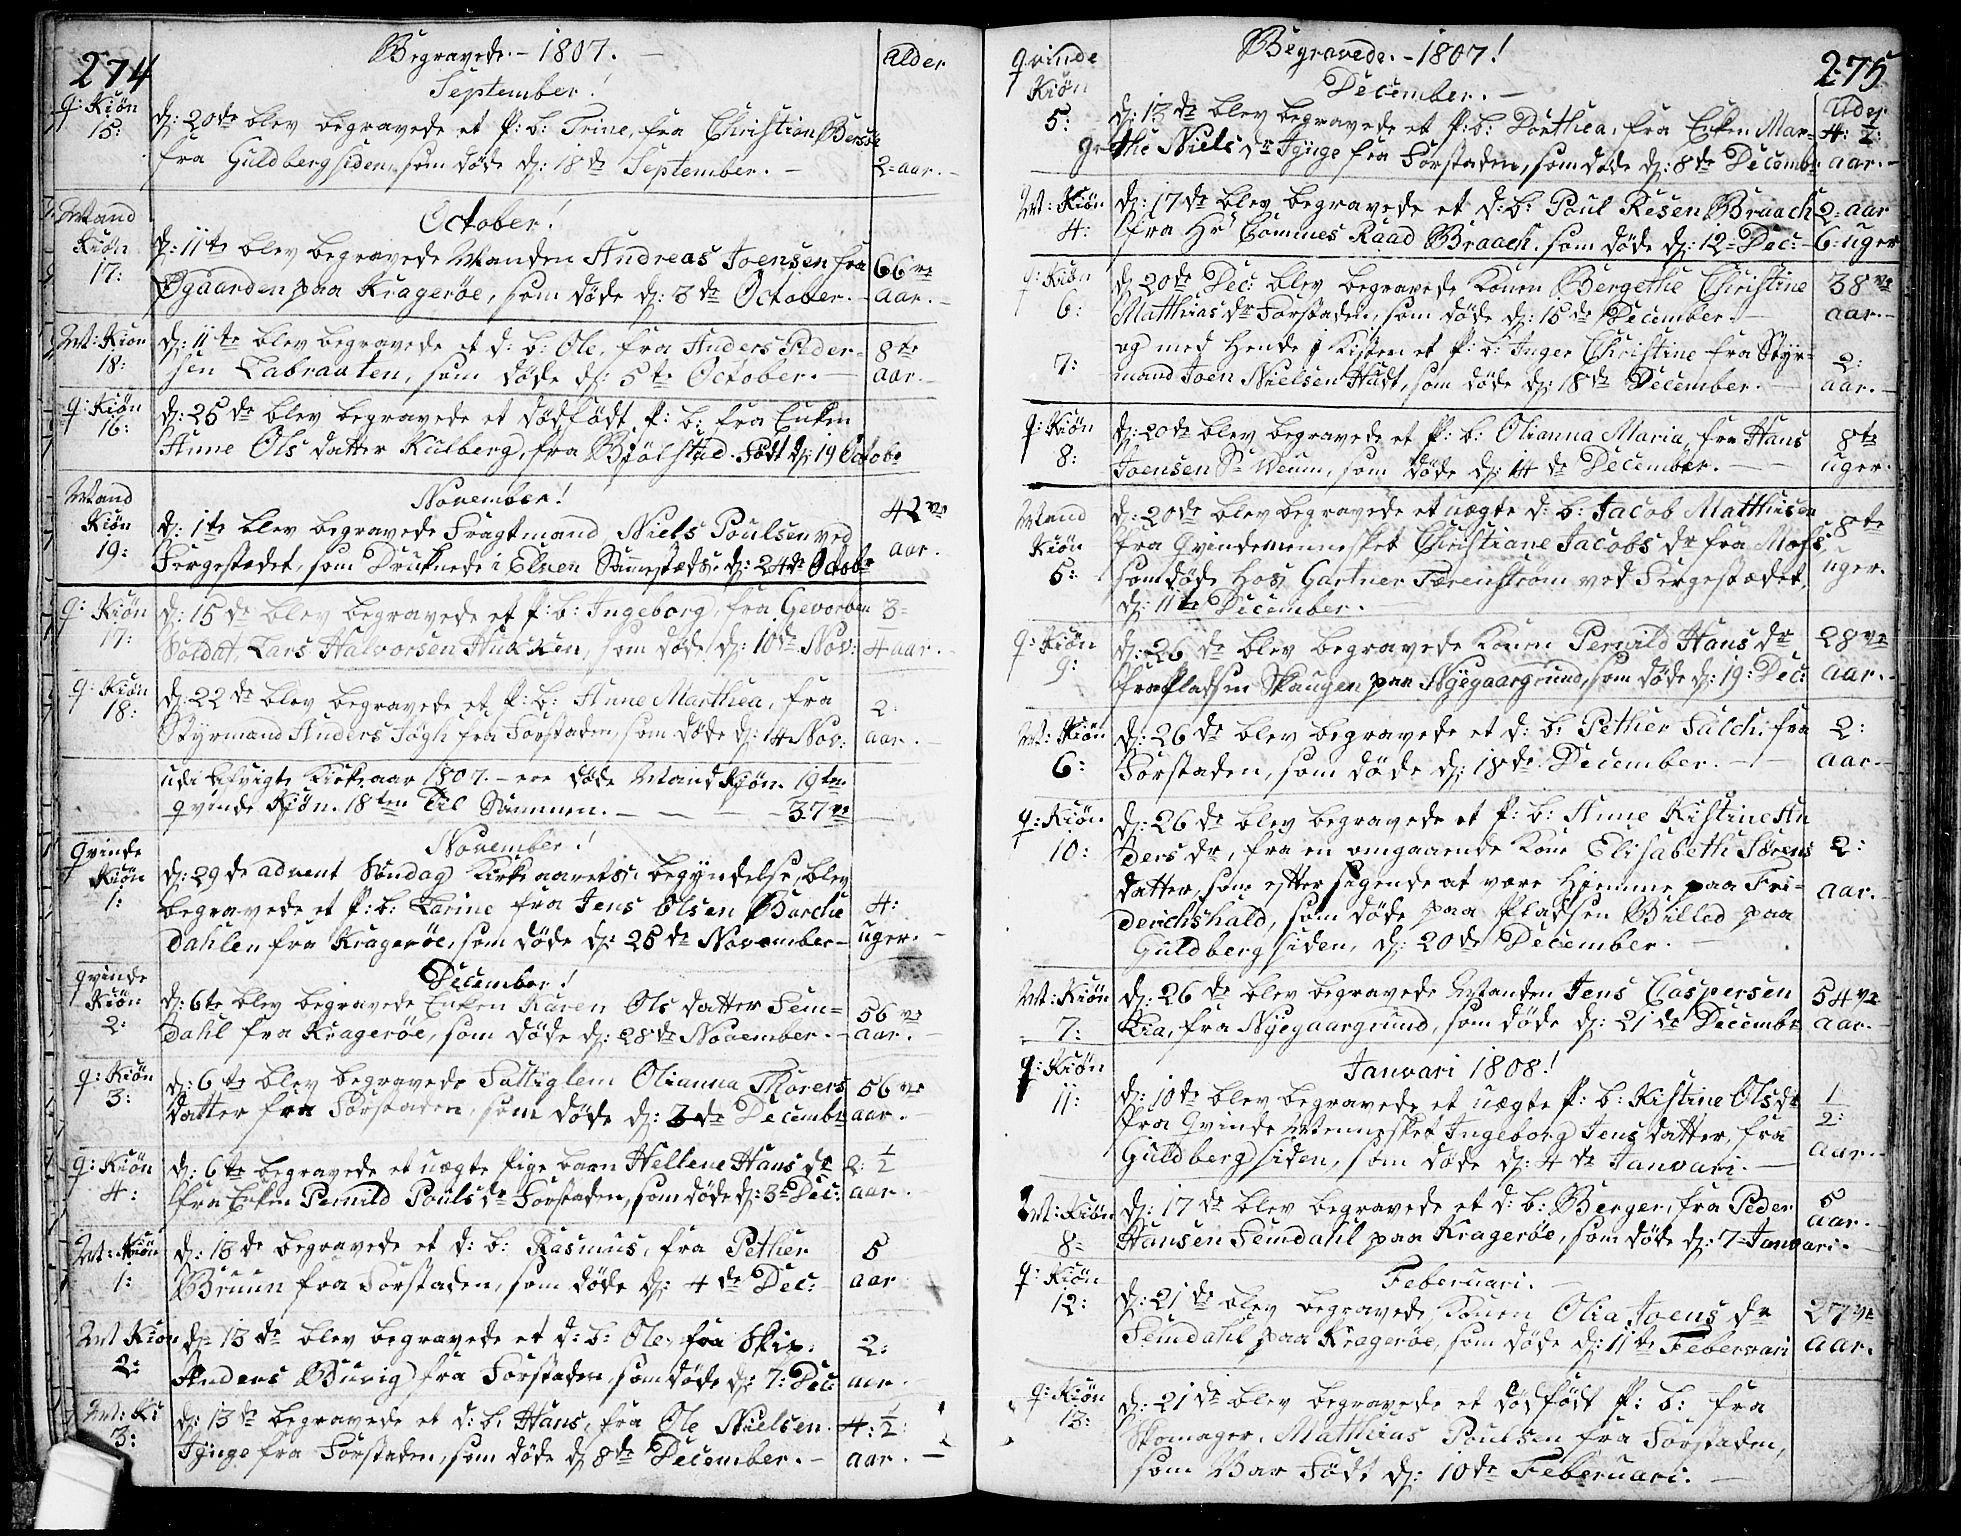 274
Begravede. - 1807. -
Alder
September!
q: Kiøn
15:
d: 20de blev begravede et P: b: Trine, fra Christian
fra Guldbergsiden, som døde d: 18de September. -
2=aar. -
October!
Mand
Kiøn
17:
d: 11te blev begravede Manden Andreas Joensen fra
Øgaarden paa Kragerøe, som døde d: 3de October. -
66ve
aar. -
M: Kiøn
18:
d: 11te blev begravede et d: b: Ole, fra Anders Peder-
sen Labraaten, som døde d: 5te October. -
8te
aar. -
q: Kiøn
16:
d: 25de blev begravede et dødfødt P: b: fra Enken
Anne Ols datter Kulberg, fra Biølstad. Født d: 19 Octobr
November!
Mand
Kiøn
19:
d: 1te blev begravede Fragtmand Niels Poulsen ved
Fergestædet, som Druknede i Elven Sammestæds d: 24de Octobr
42ve
aar.
q: Kiøn
17:
d: 15de blev begravede et P: b: Ingeborg, fra Gevorben
Soldat, Lars Halvorsen som døde d: 10de Nov:
3=
4 aar. -
q: Kiøn
18:
d: 22de blev begravede et P: b: Anne Marthea, fra
Styrmand Anders Høgh fra Forstaden, som døde d: 14 Nov:
2:
aar. -
udi Afvigte Kirkeaar 1807. - ere døde Mand Kiøn. 19ten
qvinde Kiøn. 18ten Til Sammen. - - - 37ve
November!
Qvinde
Kiøn
1:
d: 29de advent Søndag Kirke aarets begyndelse, blev
begravede et P: b: Karine fra Jens Olsen Barche
dahlen fra Kragerøe, som døde d: 25de November -
4:
uger. -
December!
qvinde
Kiøn
2:
d: 6te blev begravede Enken Karen Ols datter Sem=
dahl fra Kragerøe, som døde d: 28de November. -
56ve
aar. -
q: Kiøn
3:
d: 6te blev begravede Fattiglem Olianna Thorers
datter fra Forstaden, som døde d: 2de Decembr
56ve
aar.
q: Kiøn
4:
d: 6te begravede et uægte Pige barn Hellene Hans dr
fra Enken Pernild Pouls dr Forstaden, som døde d: 3= Dec:
2: 1/2
aar.
M: Kiøn
1:
d: 13de begravede et d: b: Rasmus, fra Pether
Bruun fra Forstaden, som døde d: 4de Dec: -
5
aar
M Kiøn
2:
d: 13de blev begravede et d: b: Ole, fra Skip:
Anders Buvig fra Forstaden, som døde d: 7: Dec:
2:
aar.
M: Ki
3:
d: 13de begravede et d: b: Hans, fra Ole Nielsen.
Tÿnge fra Forstaden, som døde d 8de December. -
4: 1/2:
aar. -
275
Begravede. - 1807!
qvinde
Kiøn
5:
December. -
Alder
d: 13de blev begravede et P: b: Dorthea, fra Enken Mar-
grethe Niels dr Tÿnge fra Forstaden, som døde d: 8de Decembr
4: 1/2:
aar. -
M: Kiøn
4:
d: 17de blev begravede et d: b: Poul Resen Braach
fra Hr Commes Raad Braach. som døde d: 12= Dec: -
2: aar
6: uger
q: Kiøn
6:
d 20de Dec: blev begravede Konen Bergethe Christine
Matthias dr Forstaden, som døde d: 15de December. -
38ve
aar. -
7:
og med Hende i Kisten et P: b: Inger Christine fra Styr-
mand Joen Nielsen Hudt, som døde d: 18de December. -
2:
aar. -
q: Kiøn
8:
d: 20de blev begravede et P: b: Olianna Maria, fra Hans
Joensen Sr Weum, som døde d: 14de December. - -
8te
uger.
Mand
Kiøn
5:
d: 20de blev begravede et uægte d: b: Jacob Matthiesen
fra Qvindemennesket Christiane Jacobs dr fra Moss,
som døde Hos Gartner Færenstrøm ved Fergestædet,
d: 11te December. -
8te
uger.
q: Kiøn
9:
d: 26de blev begravede Konen Pernild Hans dr
fra Pladsen Skaugen paa Nÿegaargrund, som døde d: 19: Dec:
28ve
aar. -
M: Kiøn
6:
d: 26de blev begravede et d: b: Pether Falch: fra
Forstaden, som døde d: 18de December. - -
2:
aar. -
q: Kiøn.
10:
d: 26de blev begravede et P: b: Anne Kistine An
ders dr, fra en omgaaende Kone Elisabeth Sørens
datter, som efter sigende at være Hiemme paa Fri-
derichshald, som døde paa Pladsen Billed paa
Guldbergsiden, d: 20de December. -
2:
aar. -
M: Kiøn
7:
d: 26de blev begravede Manden Jens Caspersen
Kia, fra Nÿegaargrund, som døde d: 21de Decembr
54ve
aar. -
Januari 1808!
q: Kiøn
11:
d: 10de blev begravede et uægte P: b: Kistine Ols dr
fra Qvinde Mennesket Ingeborg Jens datter, fra
Guldbergsiden, som døde d: 4de Januari. -
1/2:
aar. -
M: Kiøn
8=
d: 17de blev begravede et d: b: Berger, fra Peder
Hansen Semdahl paa Kragerøe, som døde d: 7= Januari. -
5
aar.
Februari. -
q: Kiøn
12:
d: 21de blev begravede Konen Olia Joens dr
Semdahl paa Kragerøe, som døde d: 11te Februari
27ve
aar.
q: Kiøn
13:
d: 21de blev begravede et dødfødt P: b: fra
Skomager, Matthias Poulsen fra Forstaden,
som Var Født d: 10de Februari. -